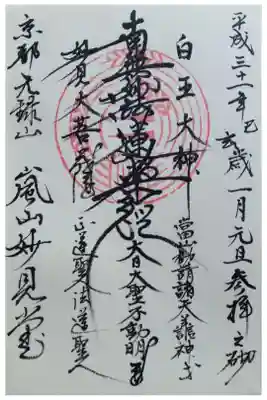 平成三十一年己
亥歳一月元旦参拝之砌
白王大神
當山勧請諸天善神
南無妙法蓮華経
大日大聖不動明王
妙見大菩薩
正道聖人法道聖人
京都元録山
嵐山妙見堂